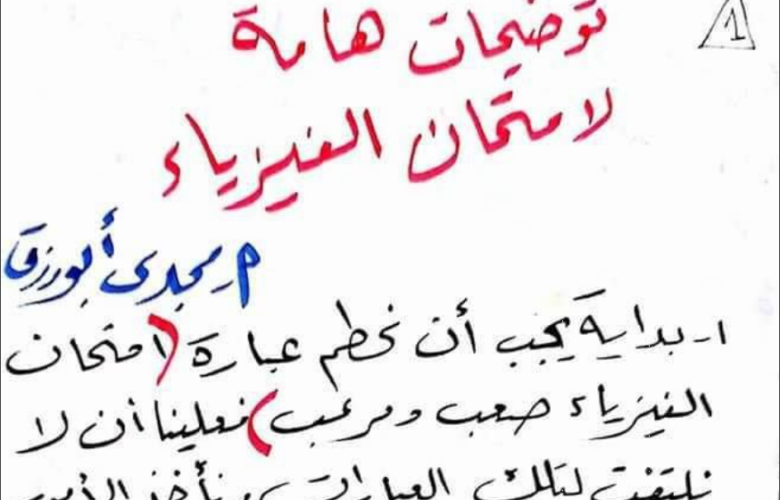 1
توضيحات هامة
لامتحان الفيزياء
م. مجدى أبورزق
١- بداية يجب أن نحطم عبارة (امتحان
الفيزياء صعب ومرعب) فعلينا أن لا
نلتفت لتلك العبارات ونأخذ الأمر